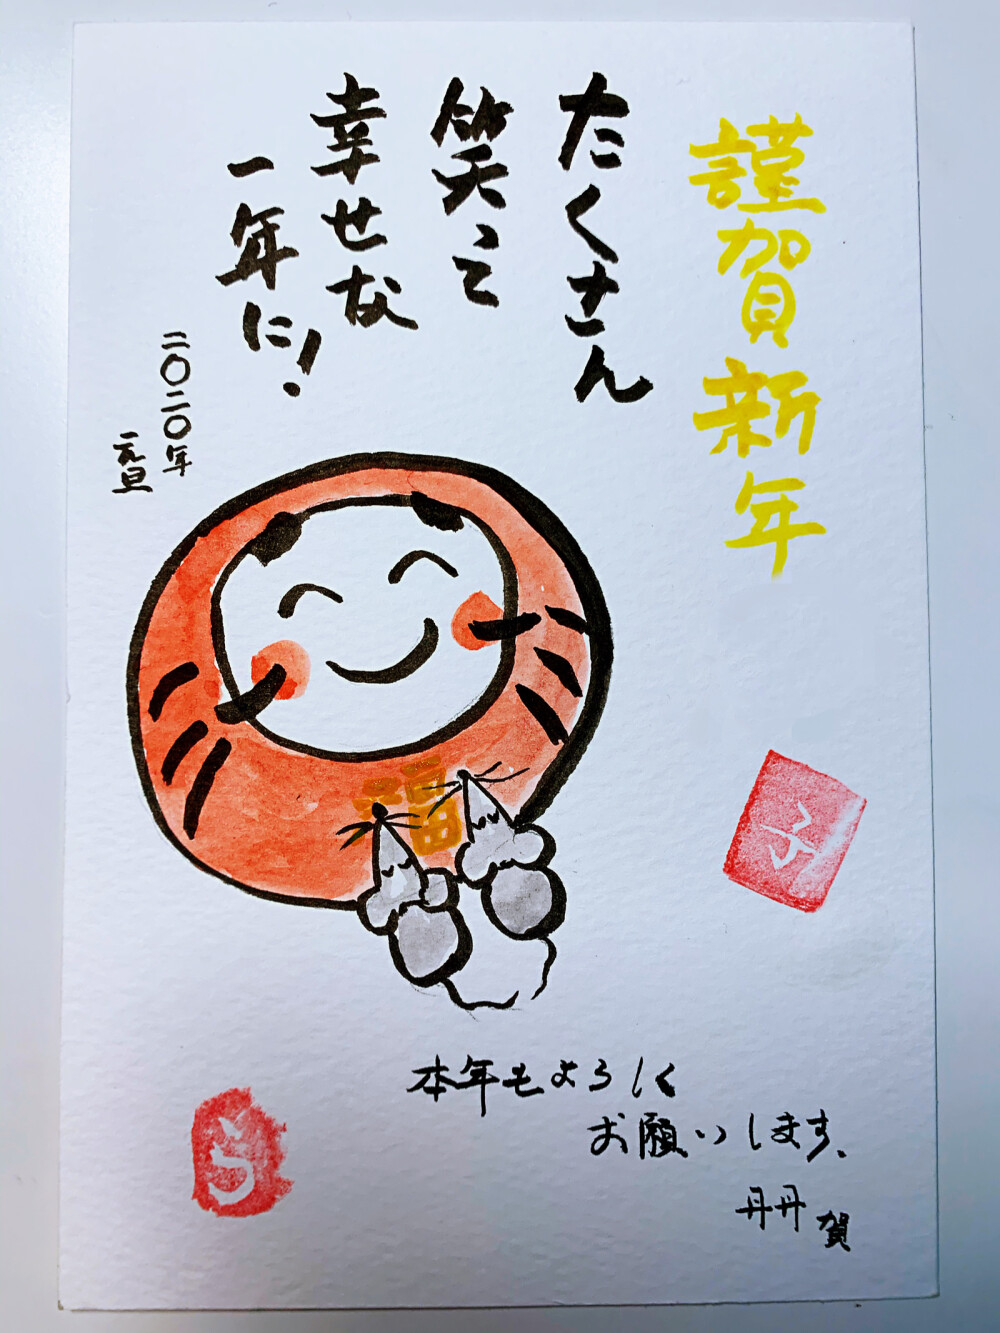 謹賀新年
たくさん
笑って
幸せな
一年に!
二〇二〇年
元旦
福
子
本年もよろしく
お願いします、
丹丹
賀
う